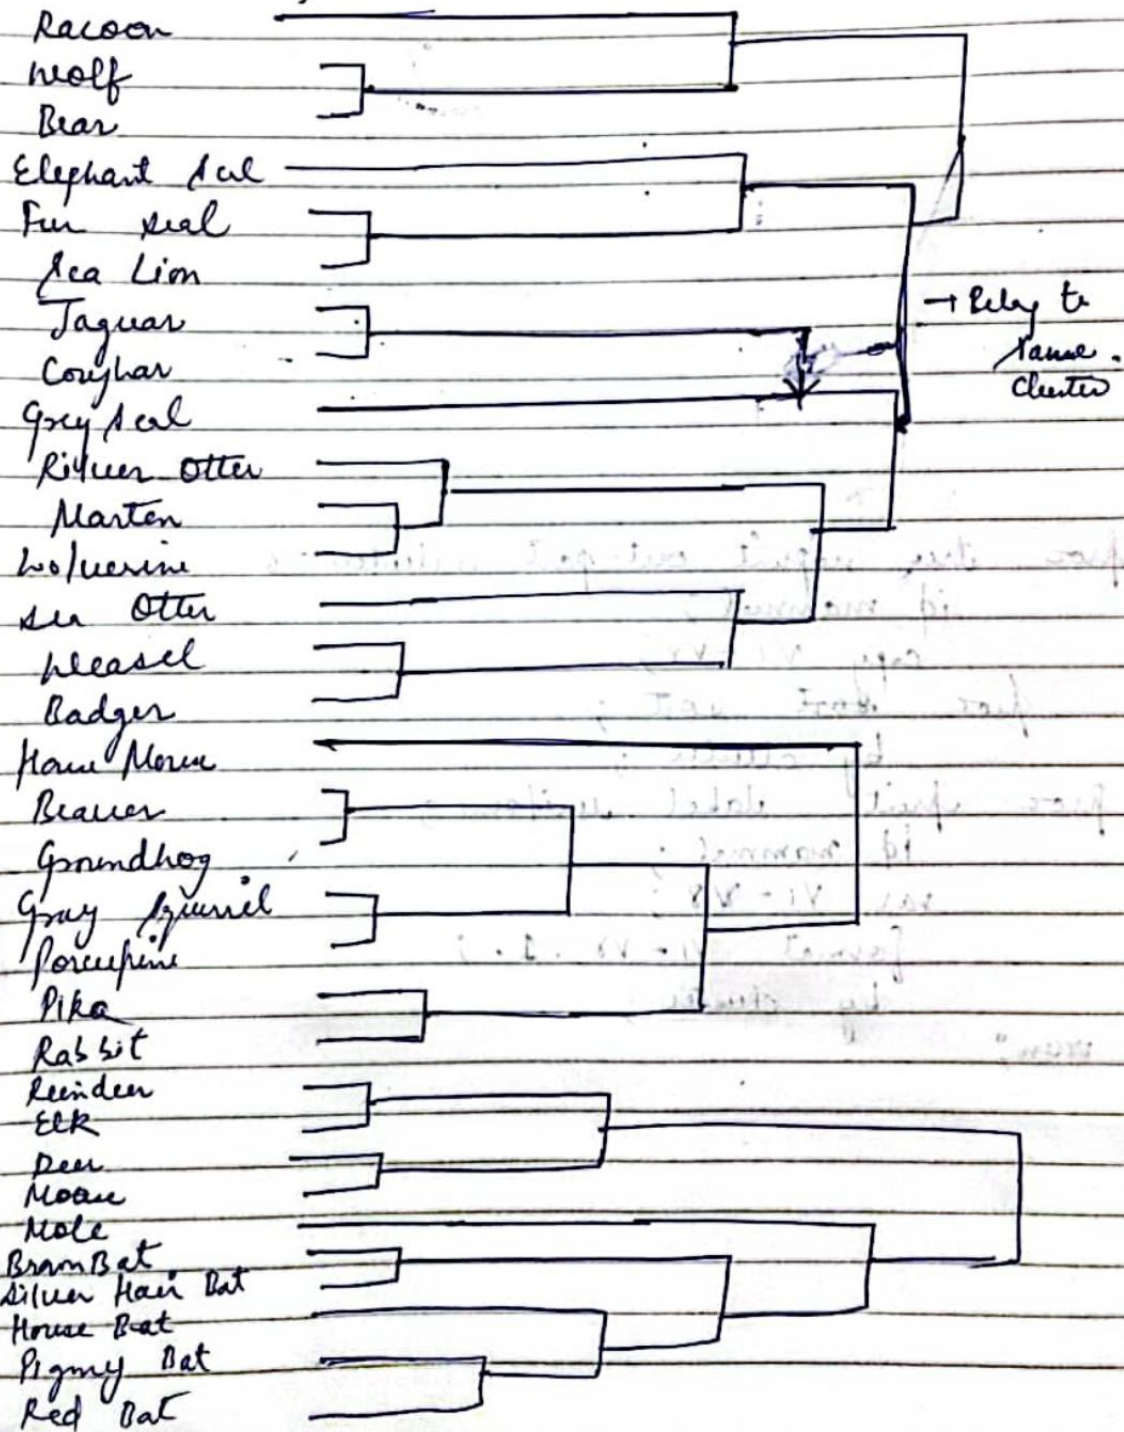 Racoon
Wolf
Bear
Elephant Seal
Fur seal
Sea Lion
Jaguar
Coughar
Grey Seal
River Otter
Marten
Wolverine
sea Otter
Weasel
Badger
House Mouse
Beaver
Groundhog
Gray Squirrel
Porcupine
Pika
Rabbit
Reindeer
Elk
Deer
Moose
Mole
Brown Bat
Silver Hair Bat
House Bat
Pigmy Bat
Red Bat
→ Belong to
same
Cluster